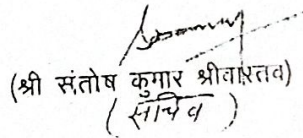 (श्री संतोष कुमार श्रीवास्तव)
(सचिव)